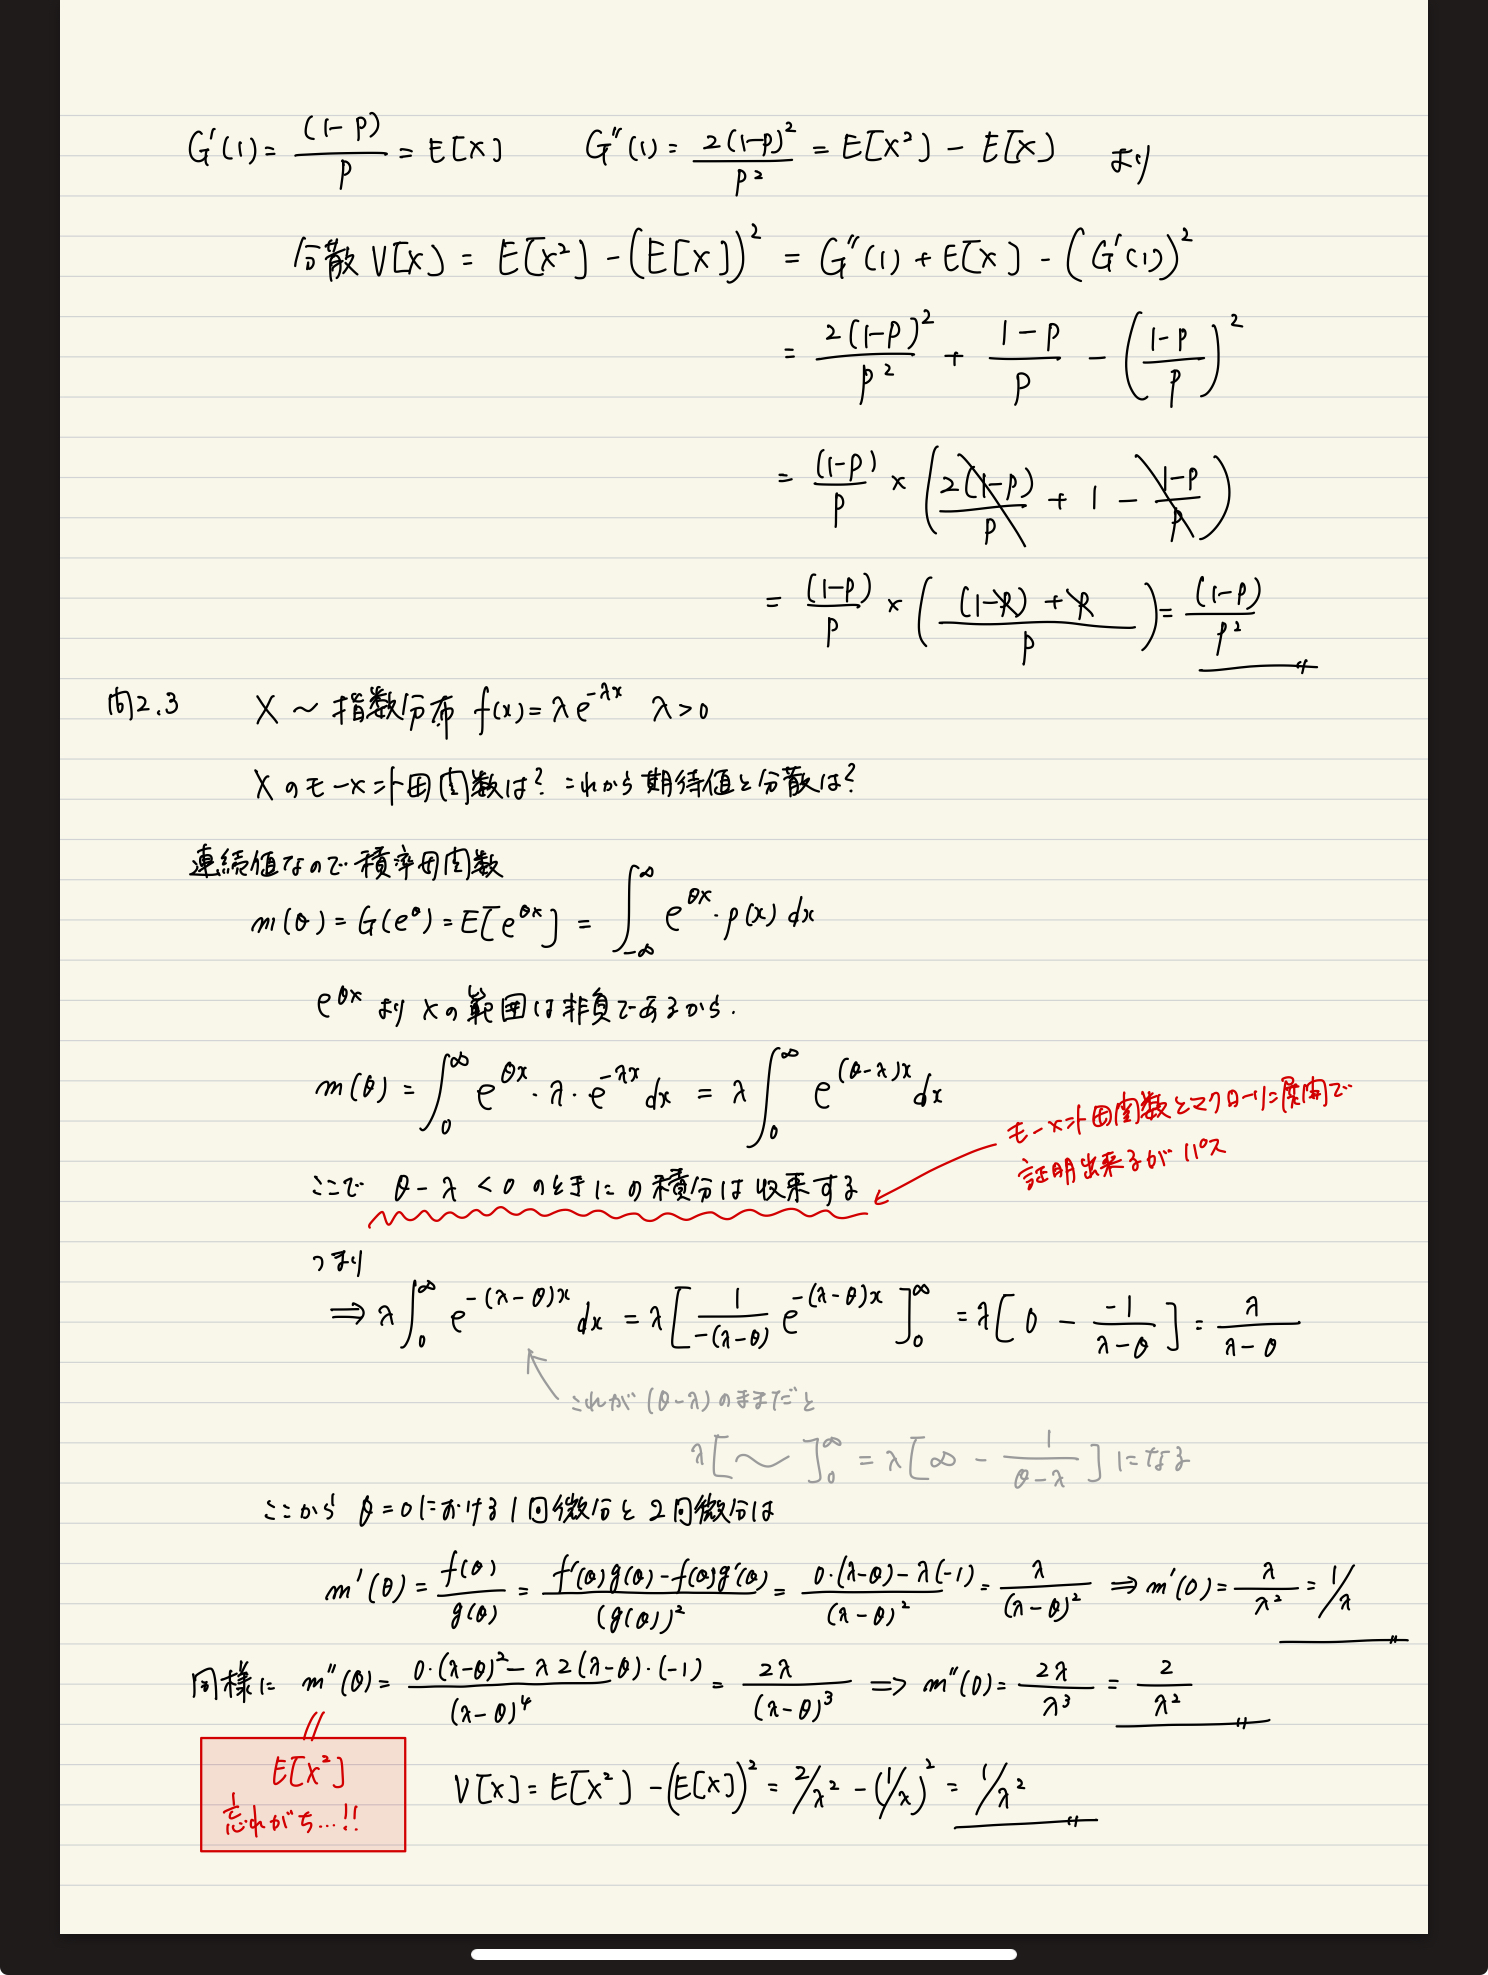 G'(1) = (1-p)/p = E[X]　G''(1) = 2(1-p)²/p² = E[X²] - E[X] より
分散 V[X] = E[X²] - (E[X])² = G''(1) + E[X] - (G'(1))²
= 2(1-p)²/p² + (1-p)/p - ((1-p)/p)²
= (1-p)/p × (2(1-p)/p + 1 - (1-p)/p)
= (1-p)/p × (((1-p)+p)/p) = (1-p)/p²
問2.3　X ~ 指数分布 f(x) = λe^{-λx}　λ>0
Xのモーメント母関数は? これから期待値と分散は?
連続値なので積率母関数
m(θ) = G(e^θ) = E[e^{θx}] = ∫_{-∞}^{∞} e^{θx}・p(x) dx
e^{θx} より xの範囲は非負であるから.
m(θ) = ∫_0^∞ e^{θx}・λ・e^{-λx} dx = λ∫_0^∞ e^{(θ-λ)x} dx
モーメント母関数とマクローリン展開で
証明出来るがパス
ここで θ-λ < 0 のときにの積分は収束する
つまり
⇒ λ∫_0^∞ e^{-(λ-θ)x} dx = λ[1/(-(λ-θ)) e^{-(λ-θ)x}]_0^∞ = λ[0 - (-1)/(λ-θ)] = λ/(λ-θ)
これが (θ-λ) のままだと
λ[~]_0^∞ = λ[∞ - 1/(θ-λ)] になる
ここから θ=0における1回微分と2回微分は
m'(θ) = f(θ)/g(θ) = (f'(θ)g(θ) - f(θ)g'(θ))/(g(θ))² = (0・(λ-θ) - λ(-1))/(λ-θ)² = λ/(λ-θ)² ⇒ m'(0) = λ/λ² = 1/λ
同様に m''(θ) = (0・(λ-θ)² - λ2(λ-θ)・(-1))/(λ-θ)⁴ = 2λ/(λ-θ)³ ⇒ m''(0) = 2λ/λ³ = 2/λ²
E[X²]
忘れがち...!!
V[X] = E[X²] - (E[X])² = 2/λ² - (1/λ)² = 1/λ²